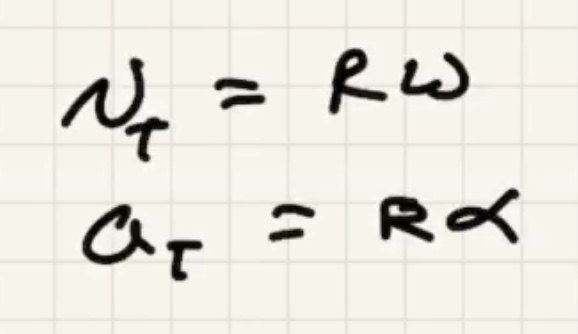 v_T = Rω
a_T = Rα